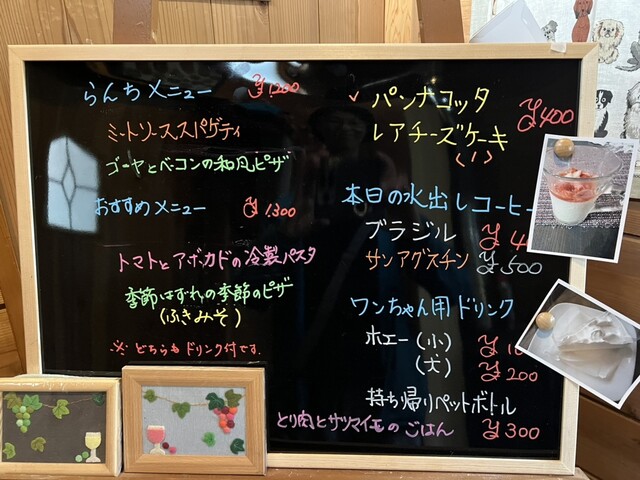 らんちメニュー ¥1200
ミートソーススパゲティ
ゴーヤとベーコンの和風ピザ
おすすめメニュー ¥1300
トマトとアボカドの冷製パスタ
季節はずれの季節のピザ
(ふきみそ)
※どちらもドリンク付です.
✓ パンナコッタ ¥400
レアチーズケーキ
(1)
本日の水出しコーヒー
ブラジル ¥4
サンアグスチン ¥500
ワンちゃん用ドリンク
ホエー(小) ¥1
(大) ¥200
持ち帰りペットボトル
とり肉とサツマイモのごはん ¥300